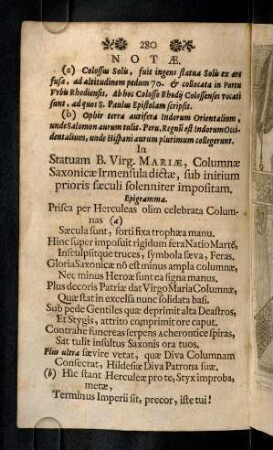 280
NOTÆ.
(a) Colossus Solis, fuit ingens statua Solis ex ære
fusa, ad altitudinem pedum 70. & collocata in Portu
Urbis Rhodiensis. Ab hoc Colosso Rhodij Colossenses vocati
sunt, ad quos S. Paulus Epistolam scripsit.
(b) Ophir terra aurifera Indorum Orientalium,
unde Salomon aurum tulit. Peru, Regnū est Indorum Occi-
dentalium, unde Hispani aurum plurimum collegerunt.
In
Statuam B. Virg. MARIÆ, Columnæ
Saxonicæ Irmensula dictæ, sub initium
prioris sæculi solenniter impositam.
Epigramma.
Prisca per Herculeas olim celebrata Colum-
nas (a)
Sæcula sunt, forti fixa trophæa manu.
Hinc super imposuit rigidum fera Natio Martē,
Insculpsitque truces, symbola sæva, Feras.
Gloria Saxonicæ nō est minus ampla columnæ,
Nec minus Heroæ sunt ea signa manus.
Plus decoris Patriæ dat Virgo Maria Columnæ,
Quæ stat in excelsa nunc solidata basi.
Sub pede Gentiles quæ deprimit alta Deastros,
Et Stygis, attrito comprimit ore caput.
Contrahe funereas serpens acherontice spiras,
Sat tulit insultus Saxonis ora tuos.
Plus ultra sævire vetat, quæ Diva Columnam
Consecrat, Hildesiæ Diva Patrona suæ.
(b) Hîc stant Herculeæ pro te, Styx improba,
metæ,
Terminus Imperii sit, precor, iste tui!